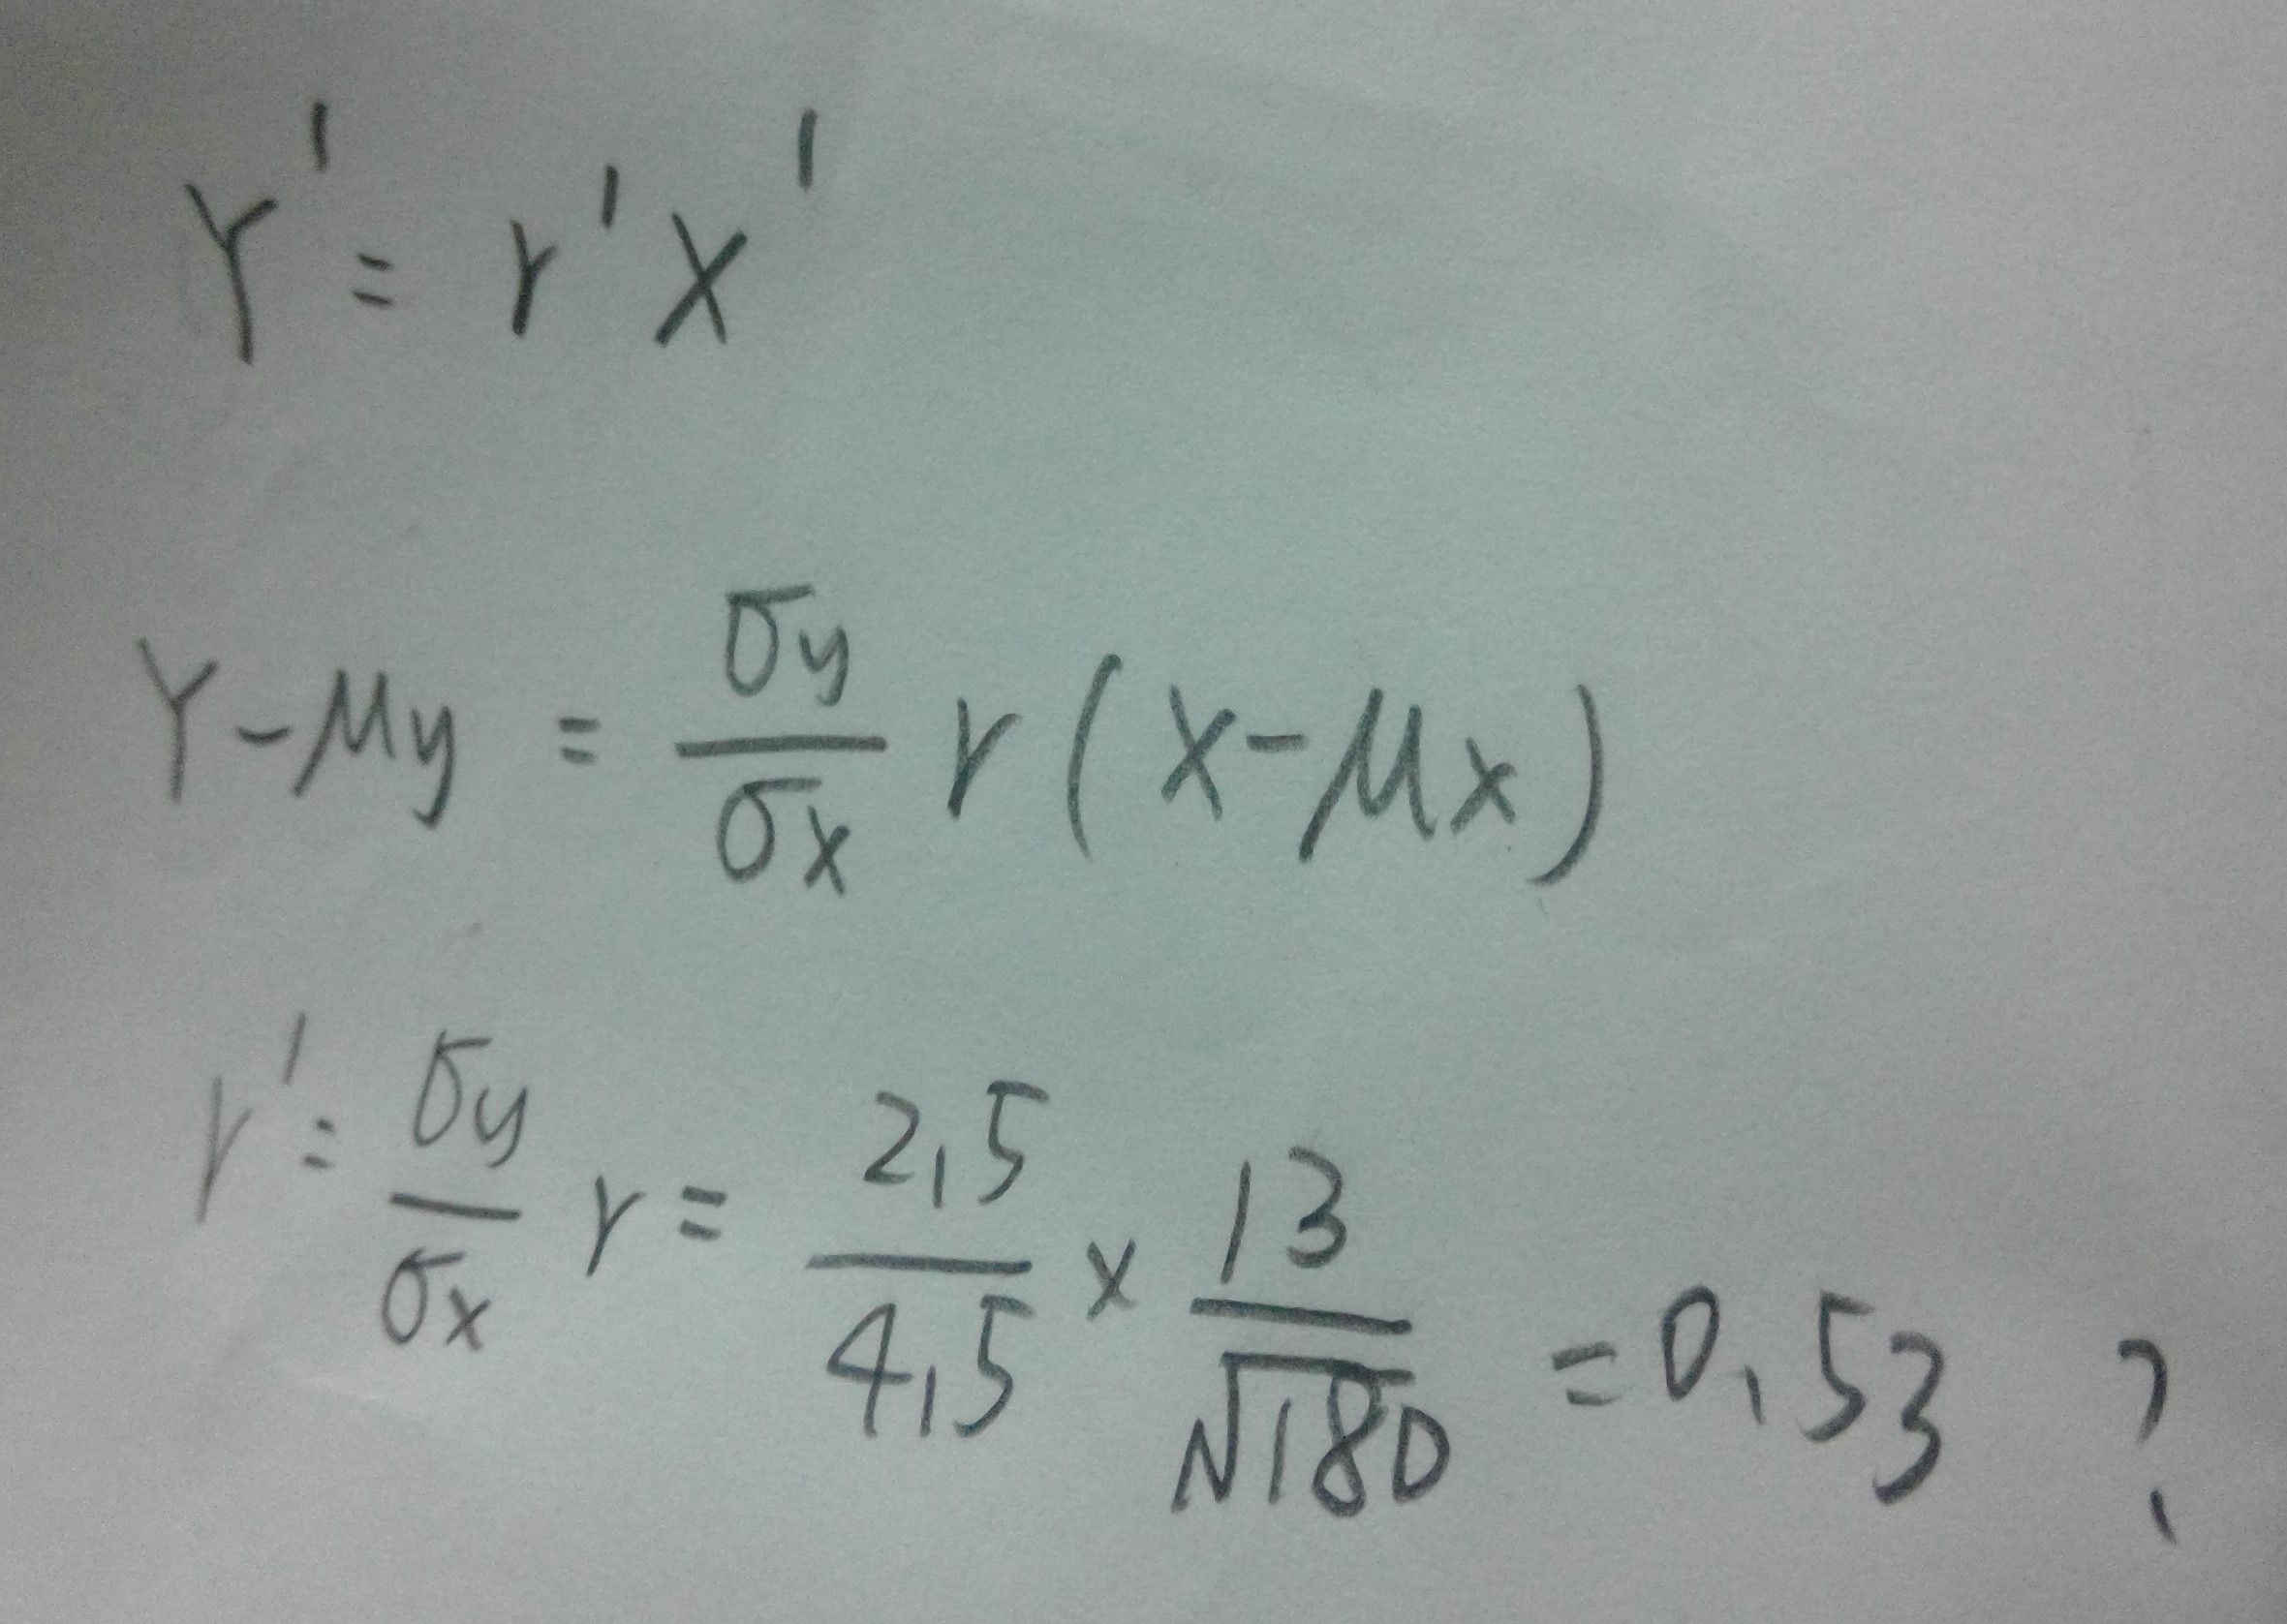 Y' = r'X'
Y - μy = σy/σx r (X - μx)
r' = σy/σx r = 2,5/4,5 × 13/√180 = 0,53 ?